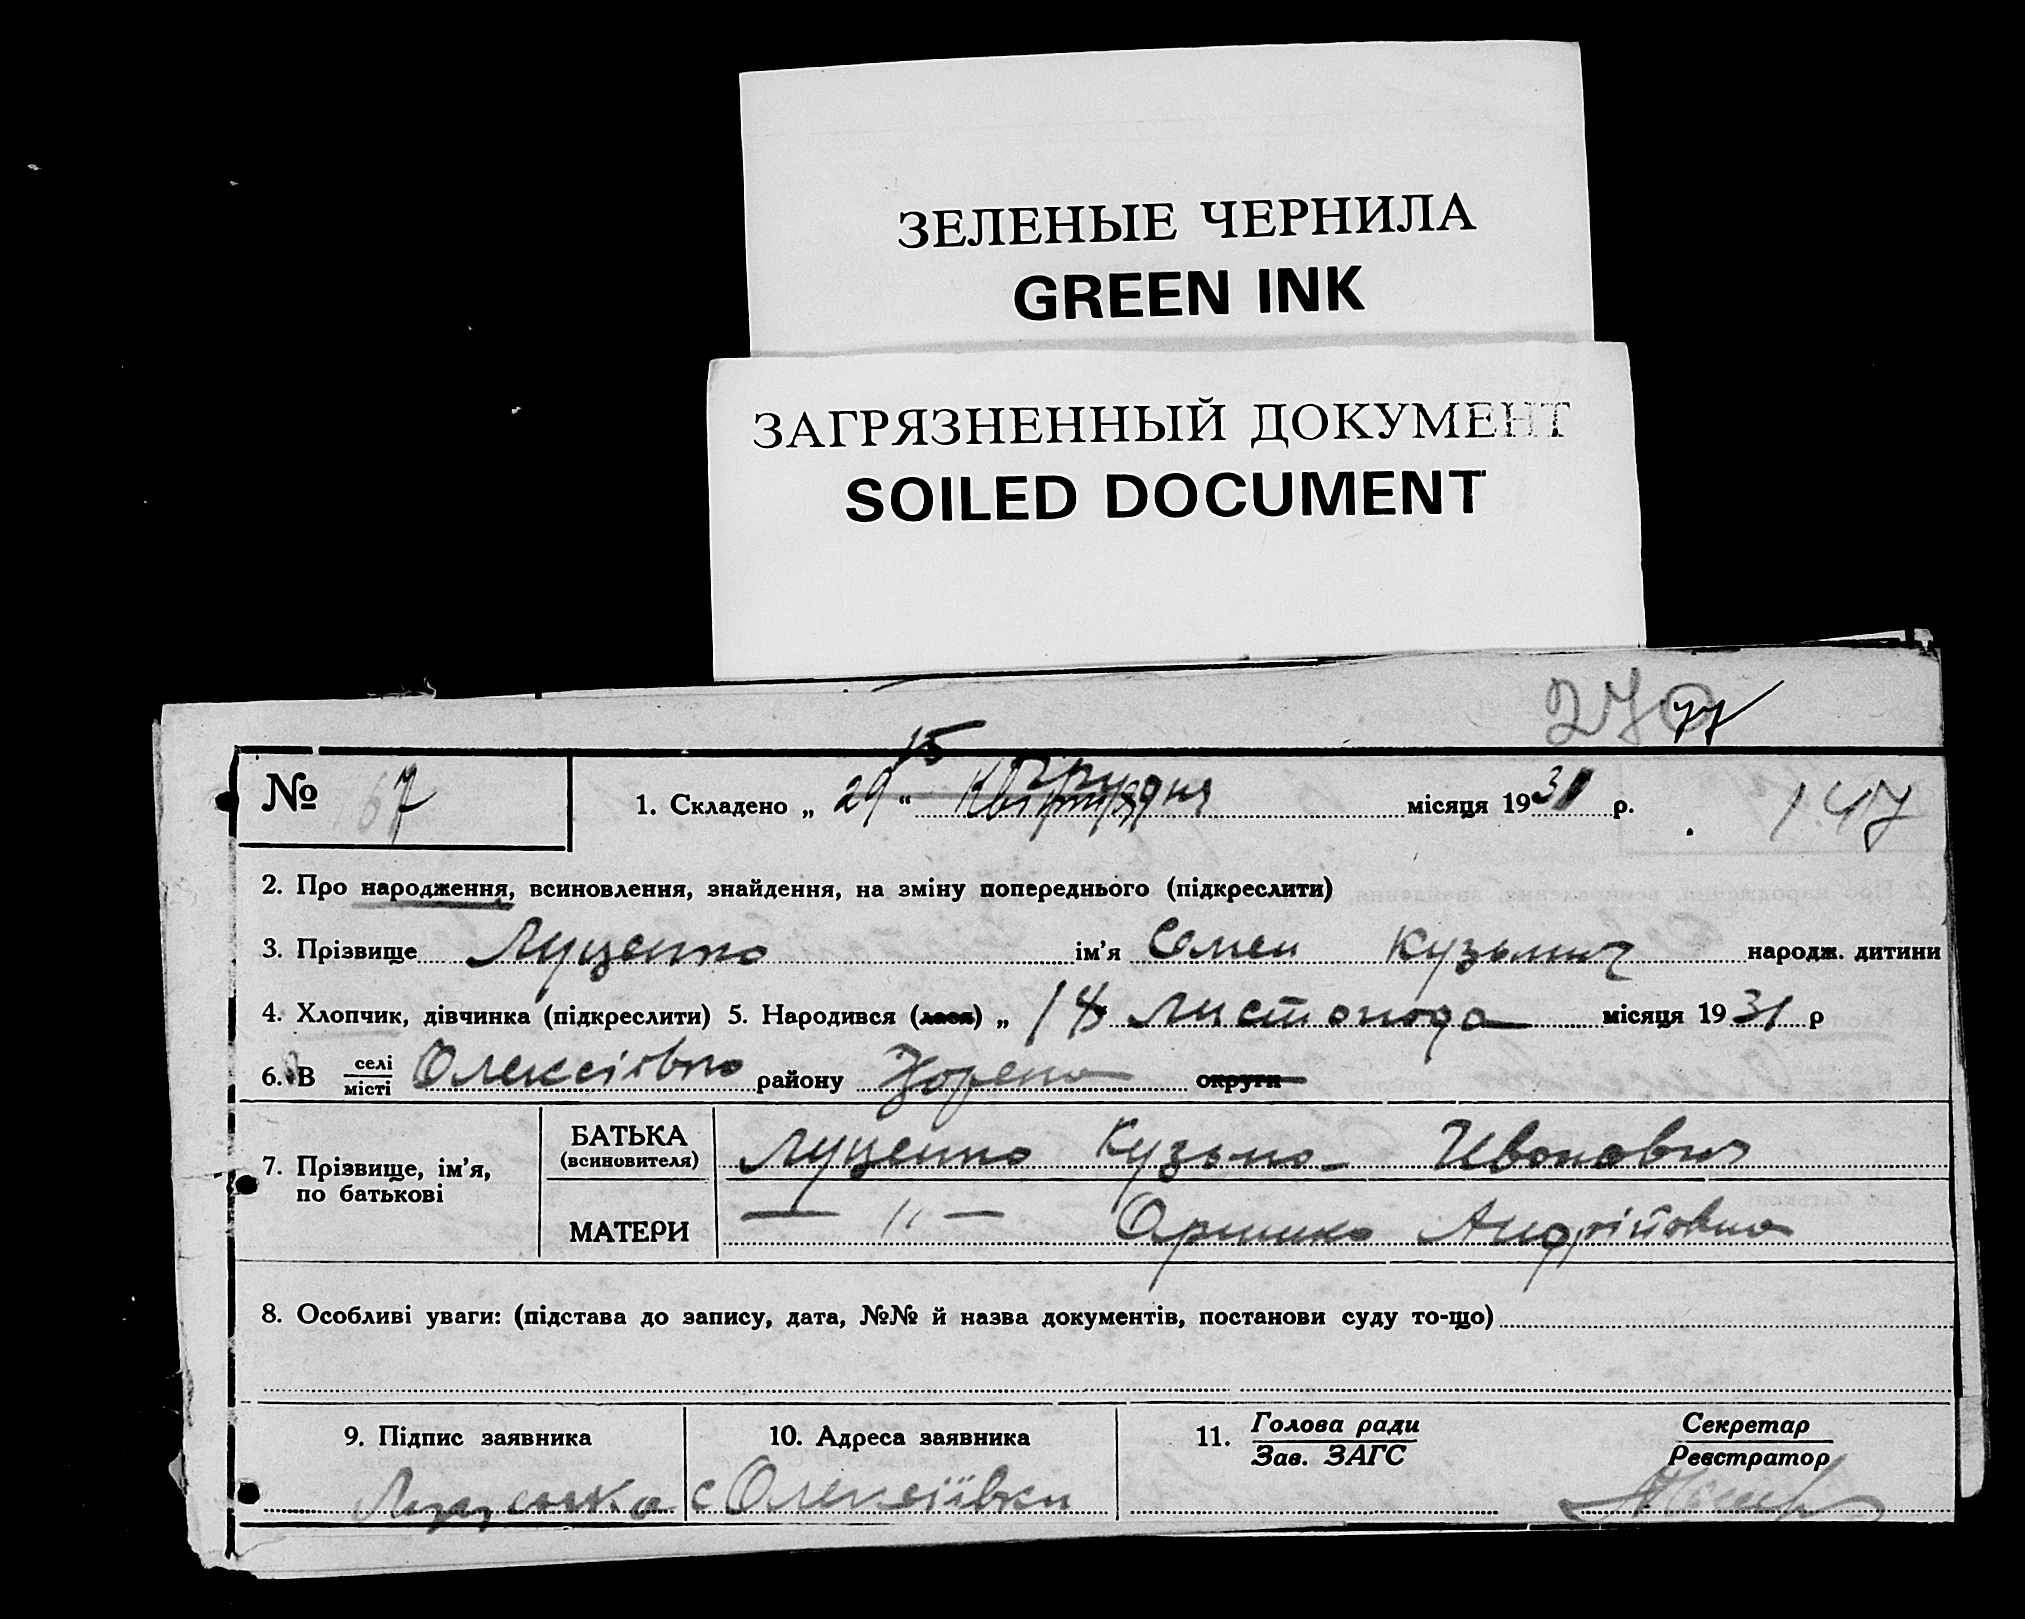 ЗЕЛЕНЫЕ ЧЕРНИЛА
GREEN INK
ЗАГРЯЗНЕННЫЙ ДОКУМЕНТ
SOILED DOCUMENT
270 77
15
№ 67 1. Складено „ 29 “ Грудня місяця 1931 р. 147
2. Про народження, всиновлення, знайдення, на зміну попереднього (підкреслити)
3. Прізвище Луценко ім’я Семен Кузьмич народж. дитини
4. Хлопчик, дівчинка (підкреслити) 5. Народився (лася) „ 18 Листопода місяця 1931 р
6. В селі місті Олексіївко району округи
7. Прізвище, ім’я, по батькові
БАТЬКА (всиновителя) Луценко Кузьма Ивонович
МАТЕРИ — 〃 — Оришко Андрійовна
8. Особливі уваги: (підстава до запису, дата, №№ й назва документів, постанови суду то-що)
9. Підпис заявника 10. Адреса заявника 11. Голова ради Секретар
Зав. ЗАГС Реєстратор
с Олексіївки